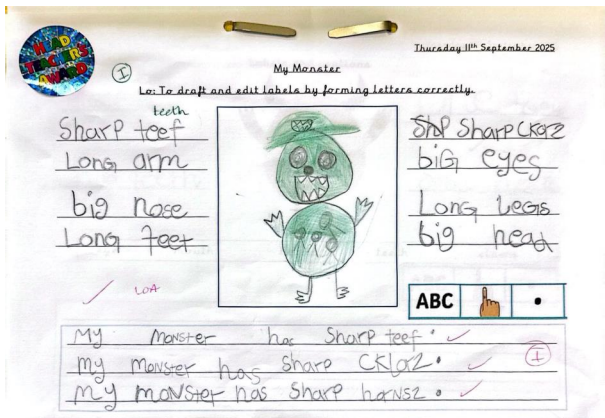 HEAD TEACHER'S AWARD
Thursday 11th September 2025
I
My Monster
Lo: To draft and edit labels by forming letters correctly.
teeth
Sharp teef
Long arm
big nose
Long feet
Sharp CKlorz
biG eyes
Long Legs
big head
LOA
ABC
My monster has Sharp teef.
my monster has sharp CKlorz.
I
My monster has Sharp hornsz.